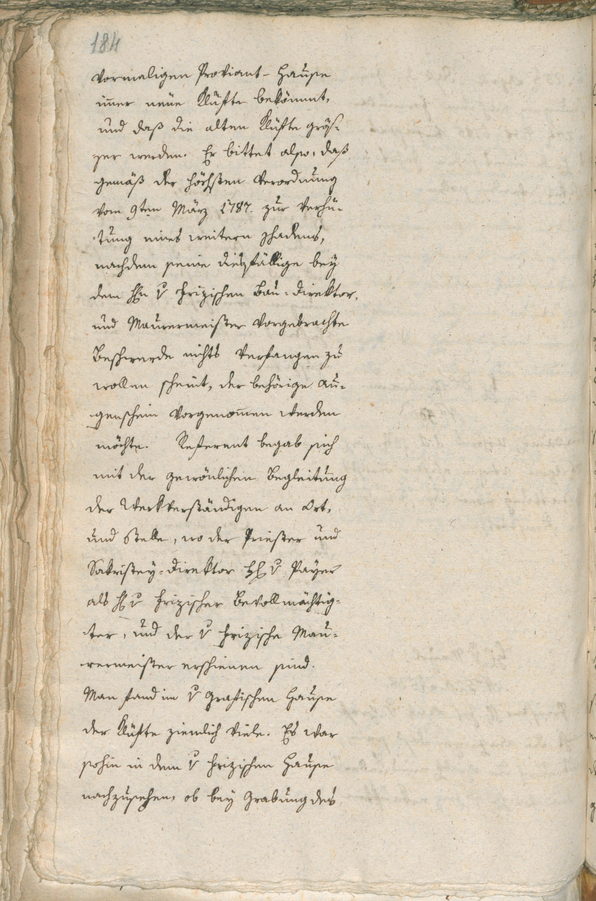 184
vormaligen Proviant-Hause
immer neüe Klüfte bekömmt,
und daß die alten Klüfte grös-
ser werden. Er bittet also, daß
gemäß der höchsten Verordnung
vom 9ten März 1787. zur Verhü-
tung eines weitern Schadens,
nachdem seine diesfällige bey
dem Hn v Hrizischen Bau-Direktor,
und Maurermeister vorgebrachte
Beschwerde nichts verfangen zu
wollen scheint, der behörige Au-
genschein vorgenommen werden
möchte. Referent begab sich
mit der gewönlichen Begleitung
der Werkverständigen an Ort,
und Stelle, wo der Priester und
Sakristey-Direktor HH v Payer
als Hn v Hrizischer Bevollmächtig-
ter, und der v Hrizische Mau-
rermeister erschienen sind.
Man fand im v Grafischen Hause
der Klüfte ziemlich viele. Es war
sohin in dem v Hrizischen Hause
nachzusehen, ob bey Grabung des